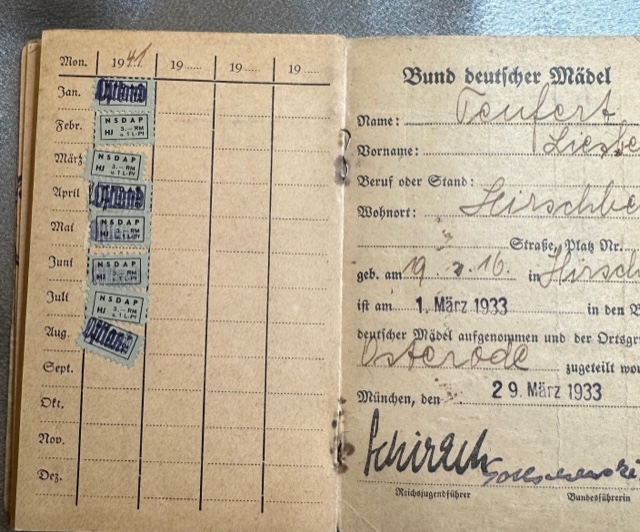 Mon. 1941 19 19 19
Jan. Ostland
Febr. NSDAP HJ 3.—RM u. 1 L.-Pf
März NSDAP HJ 3.—RM u. 1 L.-Pf
April Ostland
Mai NSDAP HJ 3.—RM u. 1 L.-Pf
Juni NSDAP HJ 3.—RM u. 1 L.-Pf
Juli NSDAP HJ 3.—RM u. 1 L.-Pf
Aug. Ostland
Sept.
Okt.
Nov.
Dez.
Bund deutscher Mädel
Name: Teufert
Vorname: Liesbe
Beruf oder Stand:
Wohnort: Hirschbe
Straße, Platz Nr.
geb. am 19. 2. 16. in Hirsch
ist am 1. März 1933 in den B
deutscher Mädel aufgenommen und der Ortsgr
Osterode zugeteilt wor
München, den 29. März 1933
Schirach
Reichsjugendführer Bundesführerin